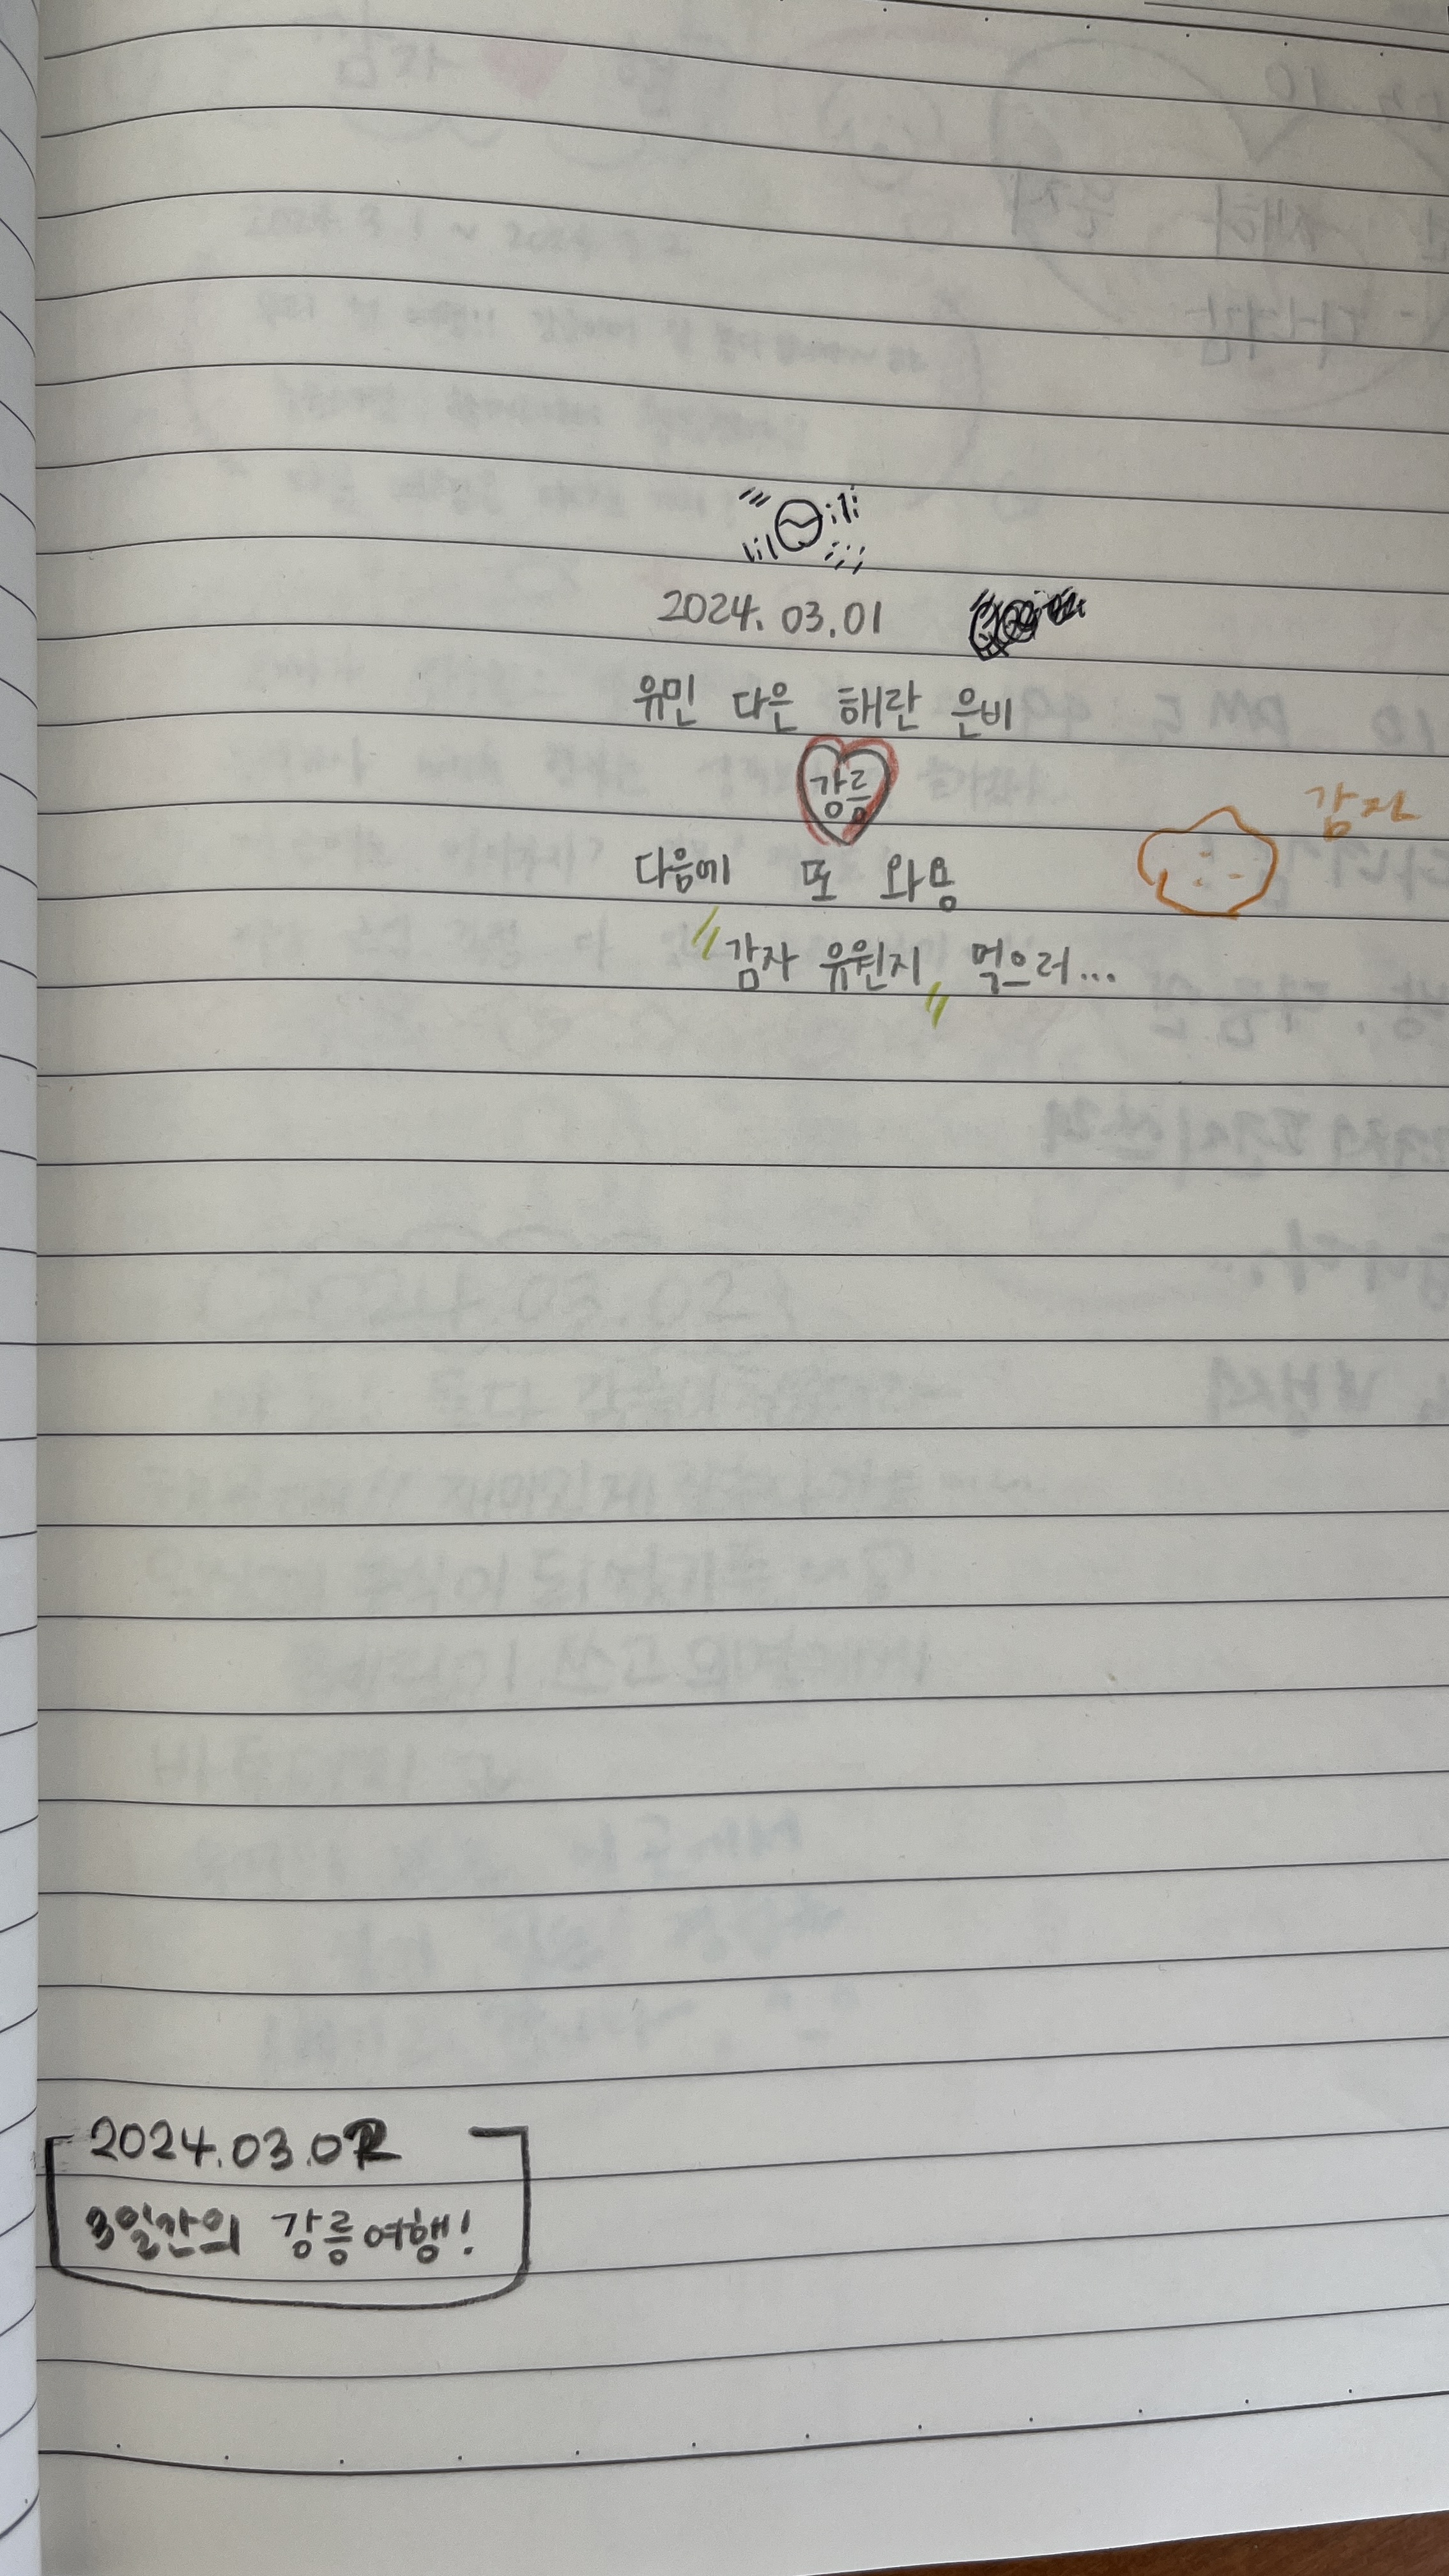 2024.03.01
유민 다은 해란 은비
강릉
다음에 또 와용
감자
"감자 유원지" 먹으러...
2024.03.02
3일간의 강릉여행!